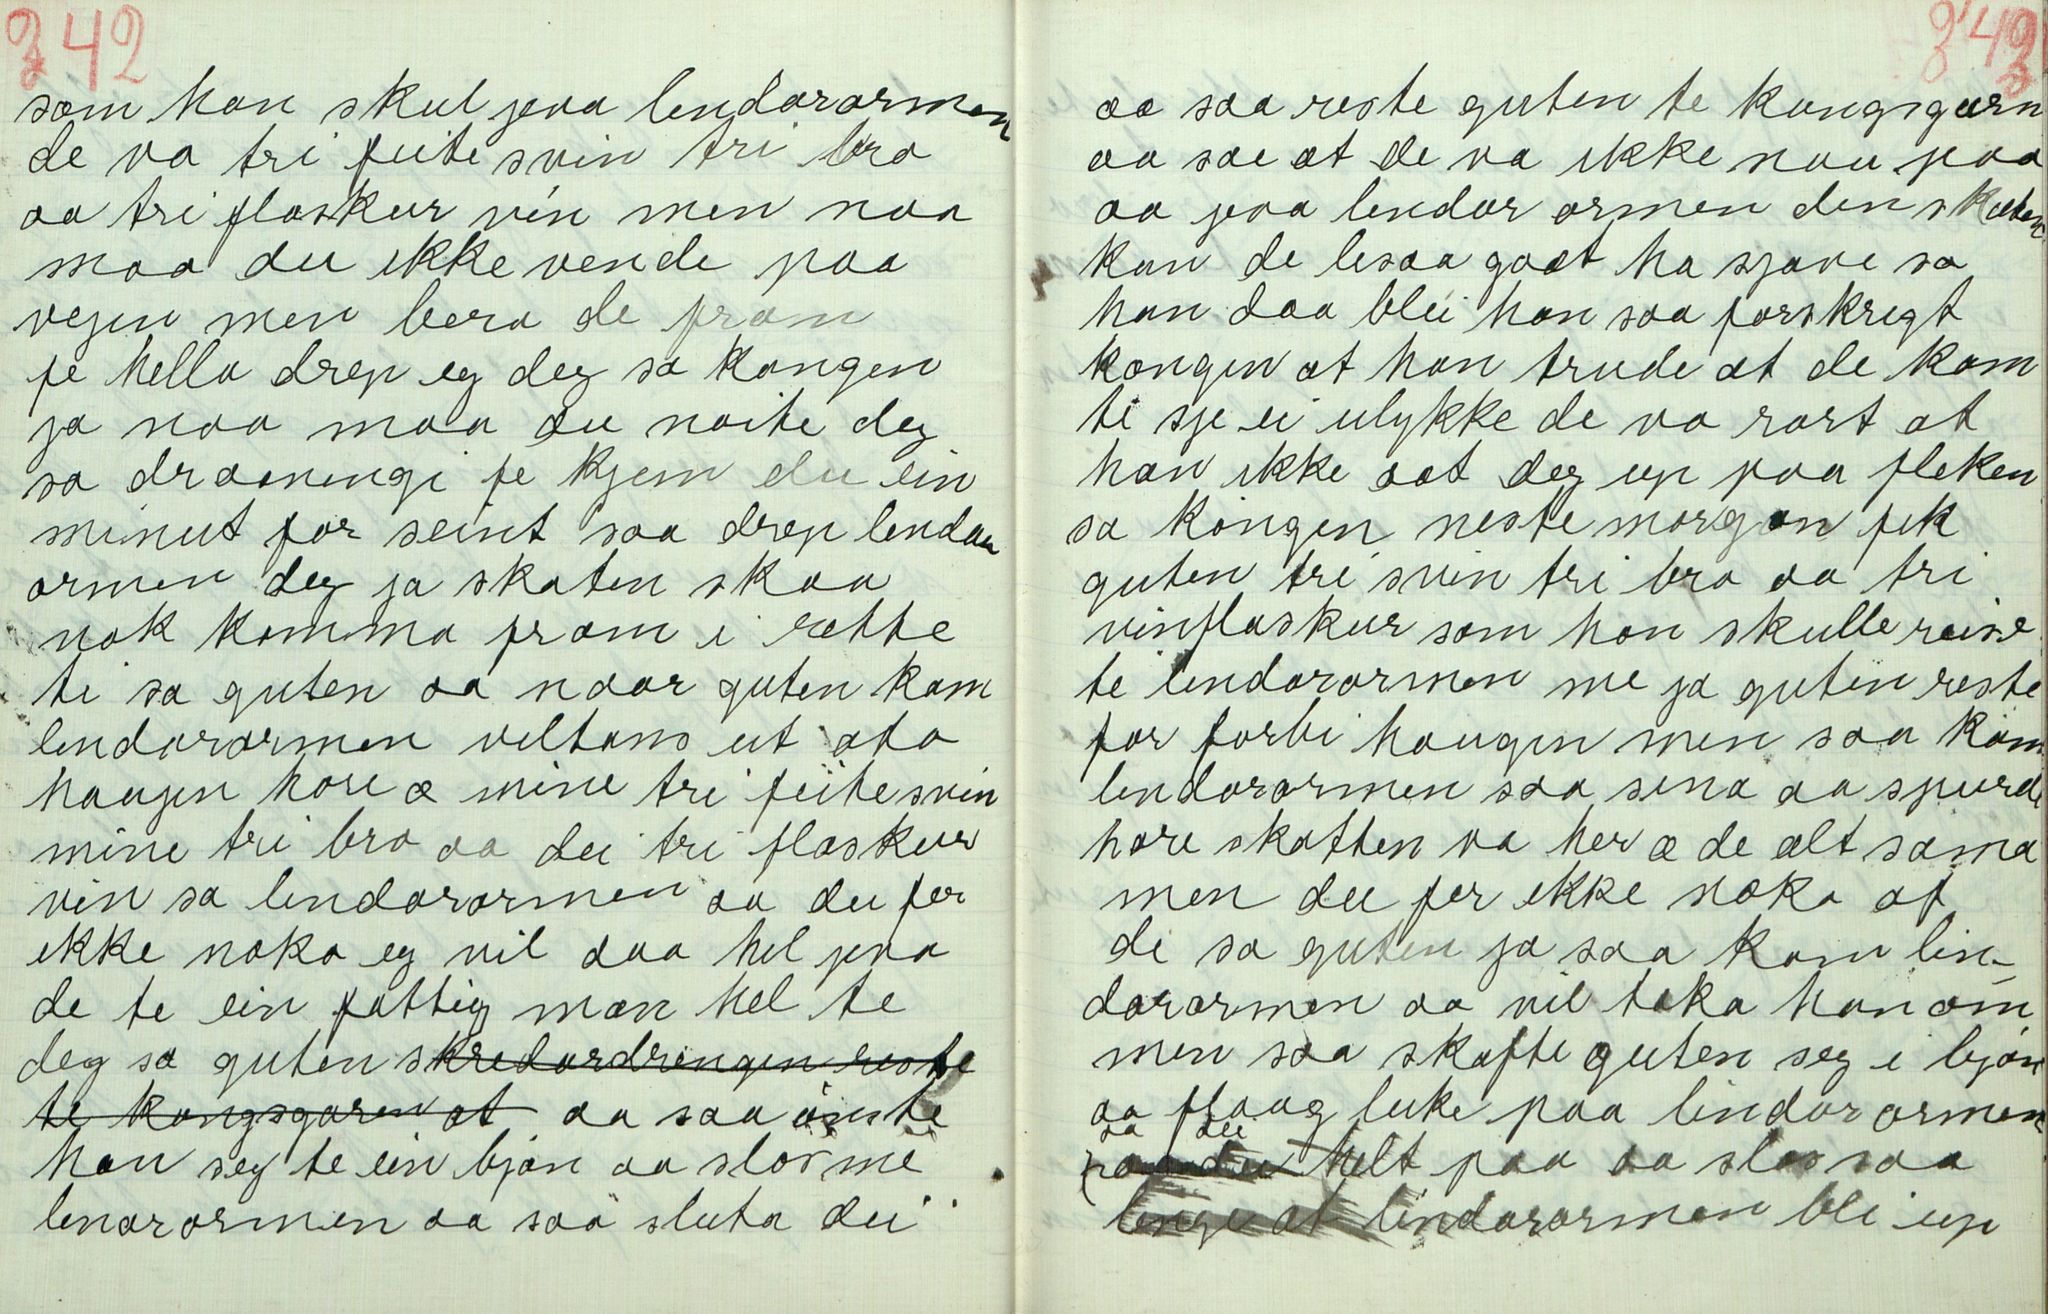 342
som han skul jeva lendarormen
de va tri feite svin tri bra
aa tri flaskur vin men naa
maa du ikke vende paa
vejen men bera de fram
fe hella drep eg deg sa kangen
ja naa maa du noite deg
sa dronningi fe kjem du ein
minut for seint saa drep lendar
ormen deg ja skaten skaa
nok komma fram i rætte
ti sa guten aa naar guten kam
lendarormen veltans ut ata
haugen hore æ mine tri feite svin
mine tri bra aa dei tri flaskur
vin sa lendarormen aa du fer
ikke noka eg vil daa hel jeva
de te ein fattig man hel te
deg sa guten skredardrengen reste
te kangsgaren at aa saa önste
han seg te ein bjön aa slos me
lenarormen aa saa sluta dei
343
aa saa reste guten te kangsgarn
aa sae at de va ikke nau paa
aa jeva lendar ormen den skaten
kan de lesaa gaat ha sjøve sa
han daa blei han saa forskregt
kongen at han trude at de kam
te sje ei ulykke de va rart at
han ikke aat deg up paa fleken
sa kongen neste morgon fik
guten tri svin tri bra aa tri
vinflaskur som han skulle reise
te lendarormen me ja guten reste
for forbi haugen men saa kam
lendarormen saa sena aa spurde
hore skatten va her æ de alt sama
men du fer ikke noka af
de sa guten ja saa kam lin-
darormen aa vil taka han om
men saa skafte guten seg i bjön
aa flaug luke paa lindarormen
aa dei
helt paa aa slos saa
lenge at lindarormen blei up